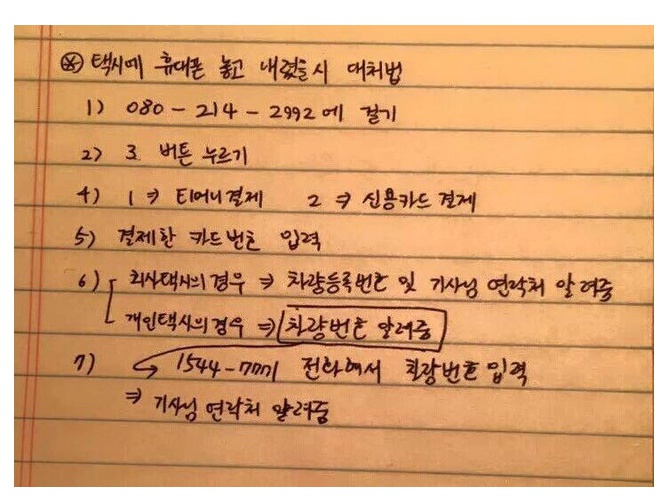 ※ 택시에 휴대폰 놓고 내렸을시 대처법
1) 080 - 214 - 2992 에 걸기
2) 3 버튼 누르기
4) 1 ⇒ 티머니결제 2 ⇒ 신용카드 결제
5) 결제한 카드번호 입력
6) 회사택시의 경우 ⇒ 차량등록번호 및 기사님 연락처 알려줌
개인택시의 경우 ⇒ 차량번호 알려줌
7) 1544-7771 전화해서 차량번호 입력
⇒ 기사님 연락처 알려줌